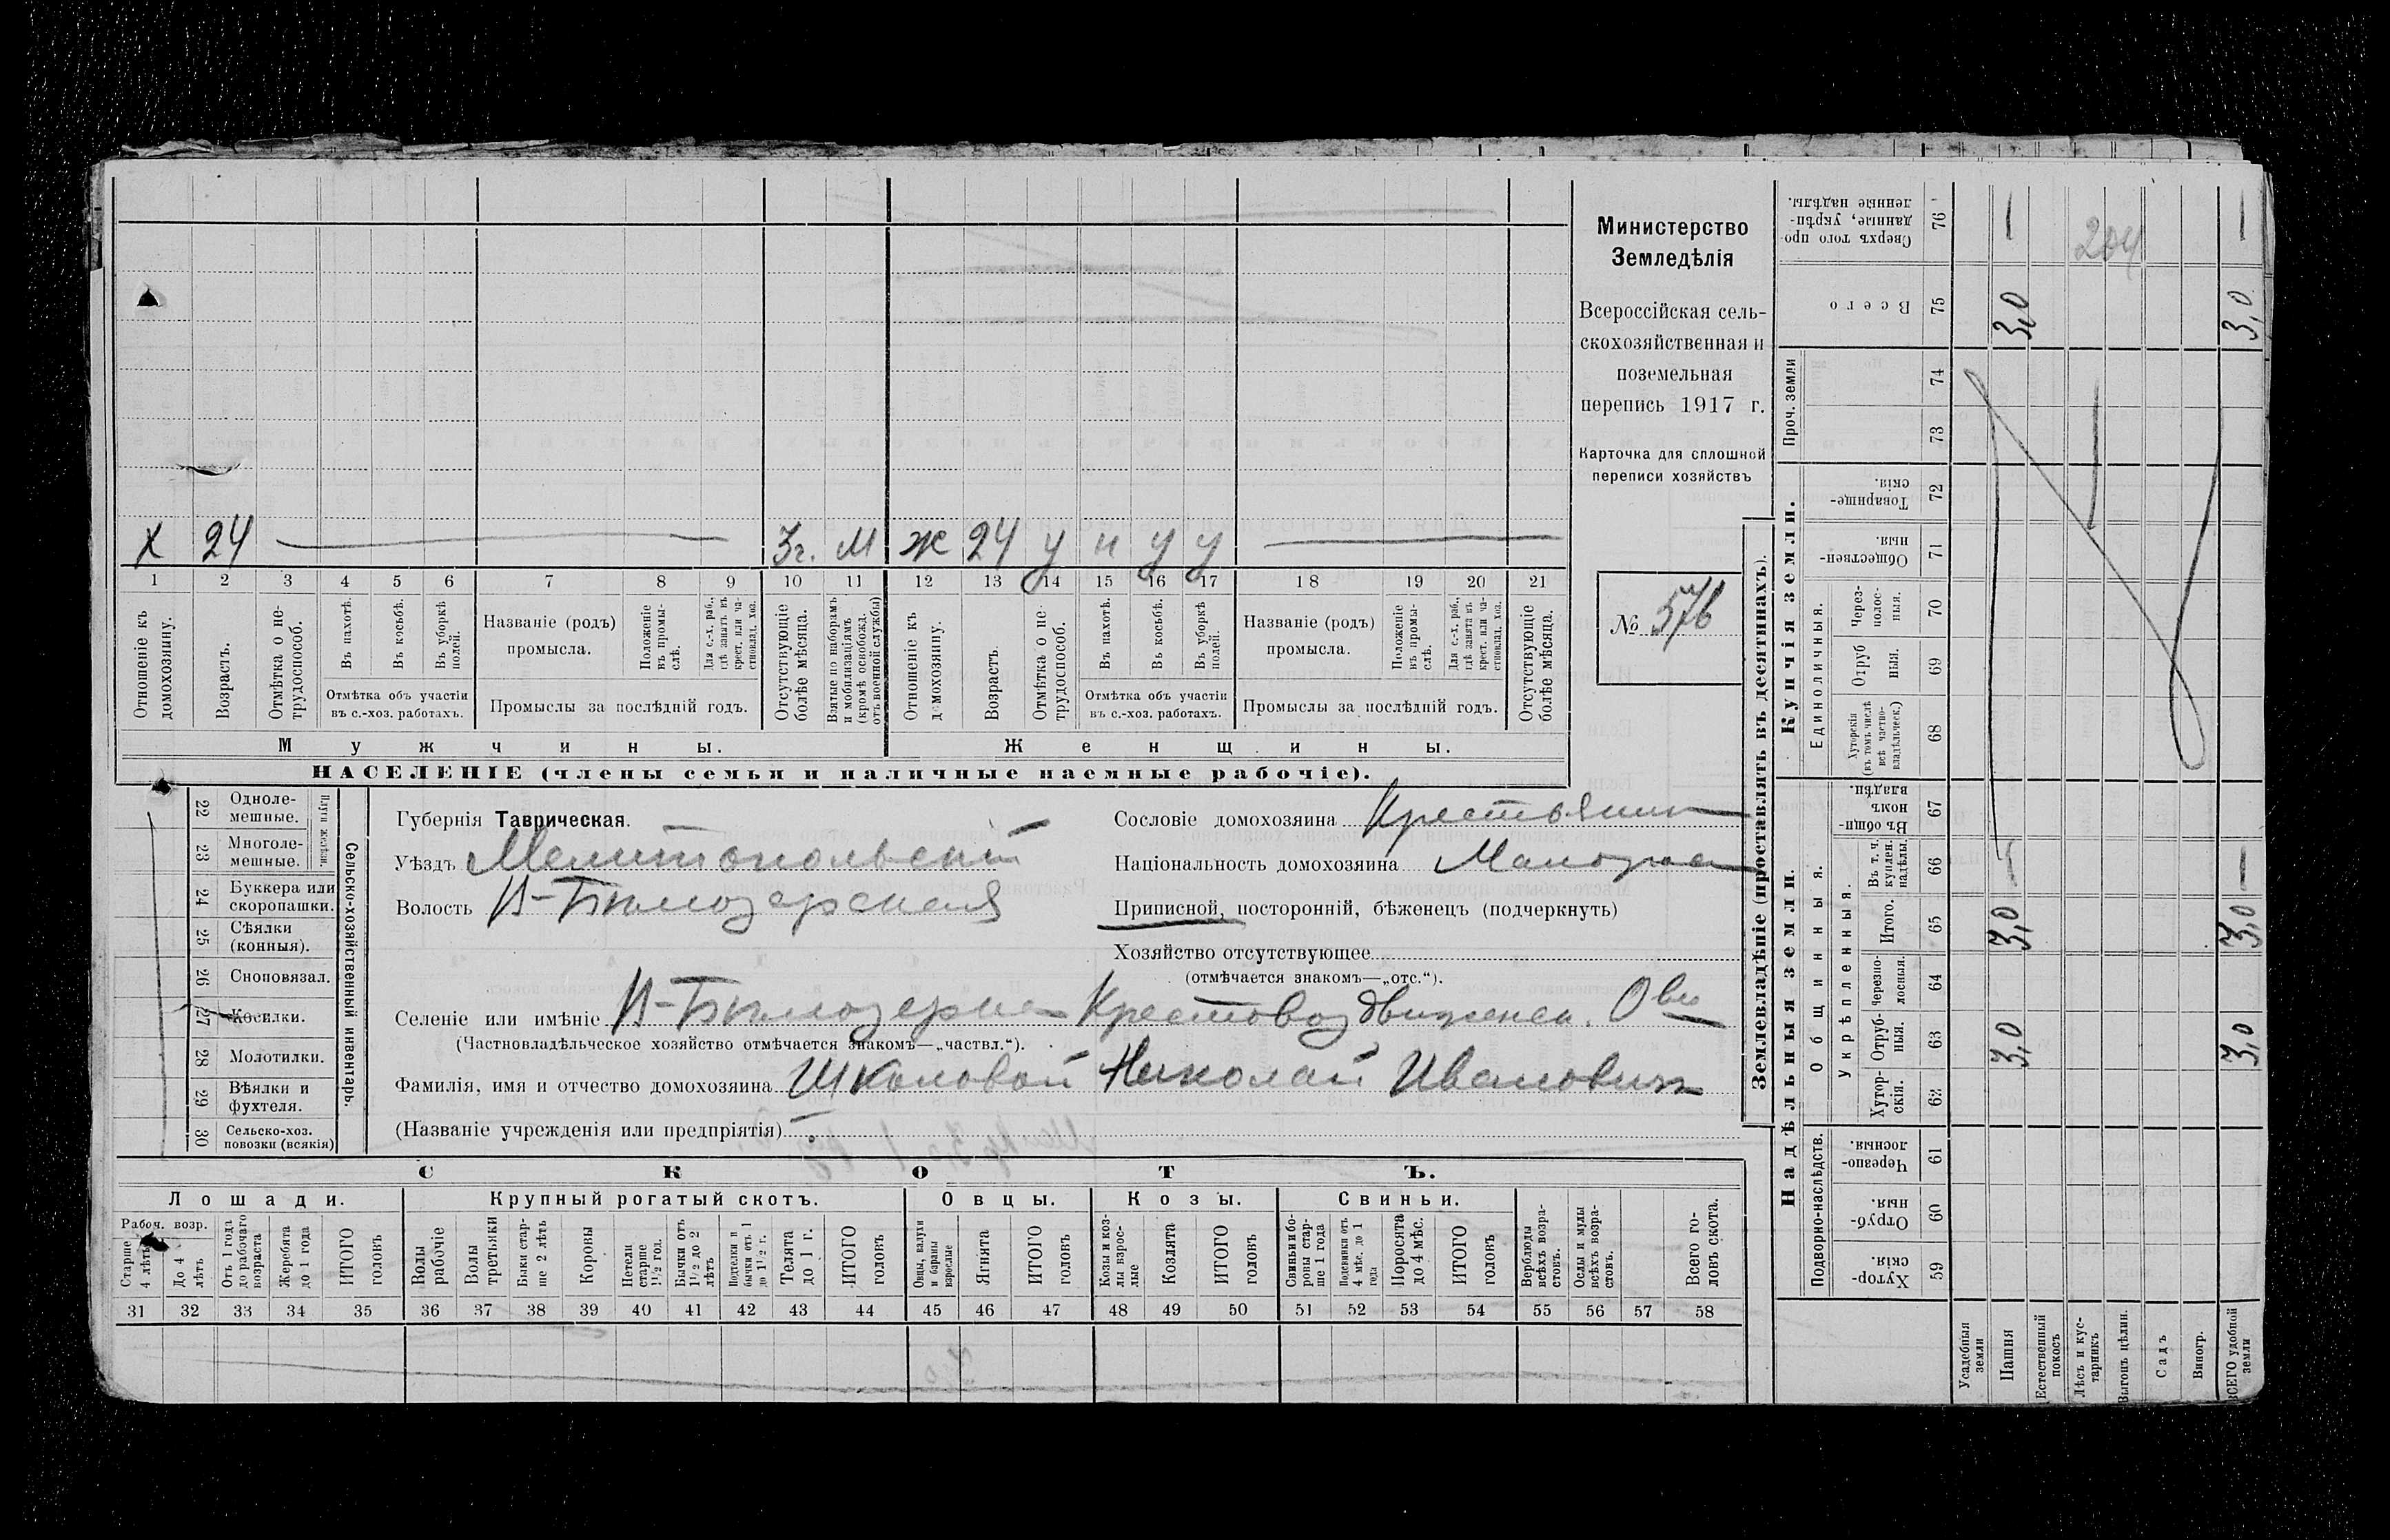 Министерство
Земледѣлія
Всероссійская сель-
скохозяйственная и
поземельная
перепись 1917 г.
Карточка для сплошной
переписи хозяйствъ
№ 576
Х 24 3г. М Ж 24 у н у у
1 2 3 4 5 6 7 8 9 10 11 12 13 14 15 16 17 18 19 20 21
Отношеніе къ домохозяину.
Возрастъ.
Отмѣтка о не-трудоспособ.
Въ пахотѣ.
Въ косьбѣ.
Въ уборкѣ полей.
Отмѣтка объ участіи
въ с.-хоз. работахъ.
Названіе (родъ)
промысла.
Положеніе въ промы-слѣ.
Для с.-х. раб., гдѣ занятъ въ крест. или ча-стновлад. хоз.
Промыслы за послѣдній годъ.
Отсутствующіе болѣе мѣсяца.
Взятые по наборамъ и мобилизаціямъ (кромѣ освобожд. отъ военной службы)
Отношеніе къ домохозяину.
Возрастъ.
Отмѣтка о не-трудоспособ.
Въ пахотѣ.
Въ косьбѣ.
Въ уборкѣ полей.
Отмѣтка объ участіи
въ с.-хоз. работахъ.
Названіе (родъ)
промысла.
Положеніе въ промы-слѣ.
Для с.-х. раб., гдѣ занята въ крест. или ча-стновлад. хоз.
Промыслы за послѣдній годъ.
Отсутствующіе болѣе мѣсяца.
Мужчины. Женщины.
НАСЕЛЕНІЕ (члены семьи и наличные наемные рабочіе).
Сельско-хозяйственный инвентарь.
22 Одноле-мешные.
23 Многоле-мешные.
24 Буккера или скоропашки.
25 Сѣялки (конныя).
26 Сноповязал.
27 Косилки.
28 Молотилки.
29 Вѣялки и фухтеля.
30 Сельско-хоз. повозки (всякія)
Губернія Таврическая.
Уѣздъ Мелитопольскій
Волость В-Бѣлозерская
Сословіе домохозяина Крестьянин
Національность домохозяина Малорос
Приписной, посторонній, бѣженецъ (подчеркнуть)
Хозяйство отсутствующее
(отмѣчается знакомъ—„отс.“).
Селеніе или имѣніе В-Бѣлозерка Крестовоздвиженск. Ово
(Частновладѣльческое хозяйство отмѣчается знакомъ—„частвл.“).
Фамилія, имя и отчество домохозяина Школовой Николай Ивановичъ
(Названіе учрежденія или предпріятія)
СКОТЪ.
Лошади. Крупный рогатый скотъ. Овцы. Козы. Свиньи.
Рабоч. возр.
Старше 4 лѣтъ
До 4 лѣтъ
Отъ 1 года до рабочаго возраста
Жеребята до 1 года
ИТОГО головъ
Волы рабочіе
Волы третьяки
Быки стар-ше 2 лѣтъ
Коровы
Нетели старше 1½ год.
Бычки отъ 1½ до 2 лѣтъ
Подтелки и бычки отъ 1 до 1½ г.
Телята до 1 г.
ИТОГО головъ
Овцы, валухи и бараны взрослые
Ягнята
ИТОГО головъ
Козы и коз-лы взрос-лые
Козлята
ИТОГО головъ
Свиньи и бо-ровы стар-ше 1 года
Подсвинки отъ 4 мѣс. до 1 года
Поросята до 4 мѣс.
ИТОГО головъ
Верблюды всѣхъ возра-стовъ.
Ослы и мулы всѣхъ возра-стовъ.
Всего го-ловъ скота.
31 32 33 34 35 36 37 38 39 40 41 42 43 44 45 46 47 48 49 50 51 52 53 54 55 56 57 58
Землевладѣніе (проставлять въ десятинахъ).
Надѣльныя земли. Купчія земли.
Подворно-наслѣдств.
Общинныя.
Укрѣпленныя.
Единоличныя.
Проч. земли
Хутор-скія. 59
Отруб-ныя. 60
Черезпо-лосныя. 61
Хутор-скія. 62
Отруб-ныя. 63 3,0 3,0
Черезпо-лосныя. 64
Итого. 65 3,0 3,0
Въ т. ч. куплен. надѣлы. 66
Въ общи-номъ владѣн. 67
Хуторскія (въ томъ числѣ всѣ частно-владѣльческ.) 68
Отруб-ныя. 69
Через-полос-ныя. 70
Обществен-ныя. 71
Товарище-скія. 72
73
74
Всего 75 3,0 3,0
Сверхъ того про-данные, укрѣп-ленные надѣлы. 76
204
Усадебныя земли
Пашня
Естественный покосъ
Лѣсъ и кус-тарникъ
Выгонъ цѣлин.
Садъ
Виногр.
ВСЕГО удобной земли